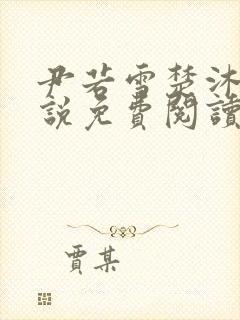 尹若雪楚沐
說免費閱讀
賈某